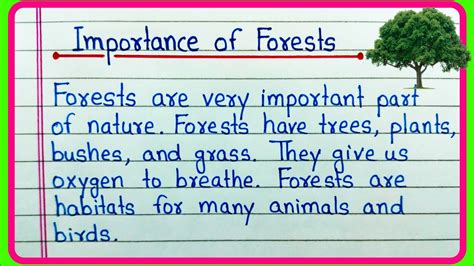 Importance of Forests
Forests are very important part
of nature. Forests have trees, plants,
bushes, and grass. They give us
oxygen to breathe. Forests are
habitats for many animals and
birds.